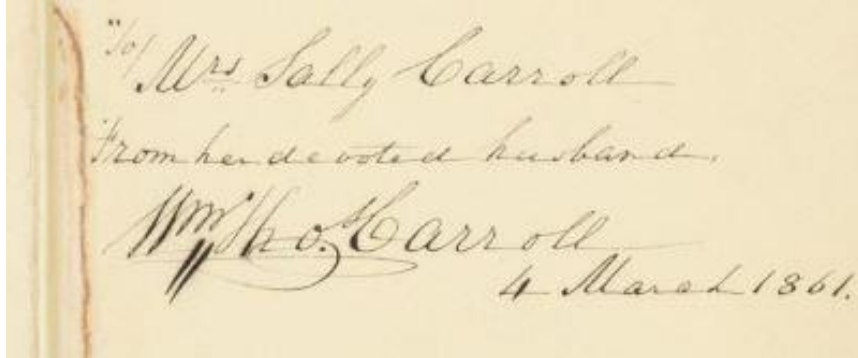 "To/
Mrs. Sally Carroll
From her devoted husband.
Wm. Thos. Carroll
4 March 1861.